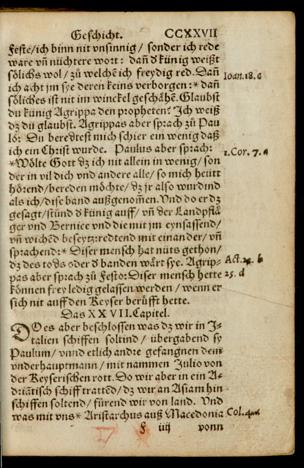 Geschicht. CCXXVII
Feste/ich binn nit vnsinnig/ sonder ich rede
ware vñ nüchtere wott : dañ ď künig weißt
söliches wol / zu welchē ich freydig red. Dañ
ich acht jm sye deren keins verborgen : * dañ Ioan.18.c
söliches ist nit im winckel geschähē. Glaubst
du künig Agrippa den propheten? Ich weiß
dz du glaubst. Agrippas aber sprach zu Pau
lo: Du beredest mich schier ein wenig daß
ich ein Christ wurde. Paulus aber sprach: 1.Cor. 7.a
*Wölte Gott dz ich nit allein in wenig / son
der in vil dich vnd andere alle / so mich heütt
hörend/bereden möchte / dz jr also wurdind
als ich / dise band außgenomen. Vnd do er dz
gesagt/stünd ď künig auff / vñ der Landpflä
ger vnd Bernice vnd die mit jm eynsassend/
vñ wichēd beseytz: redtend mit einander/ vñ
sprachend: * Diser mensch hat nüts gethon/
dz des tods oder ď banden wärt sye. Agrip= Act.23. b
pas aber sprach zu Festo: Diser mensch hette 25. d
können frey ledig gelassen werden / wenn er
sich nit auff den Keyser berüfft hette.
Das XXVII. Capitel.
DO es aber beschlossen was dz wir in J=
talien schiffen soltind / übergabend sy
Paulum/ vnnd etlich andre gefangnen dem
vnderhauptmann / mit nammen Julio von
der Keyserischen rott. Do wir aber in ein A=
driätisch schiff trattēd/ dz wir an Asiam hin
schiffen soltend/ fürend wir von land. Vnd
was mit vns * Aristarchus auß Macedonia Col.4.
iiij vonn